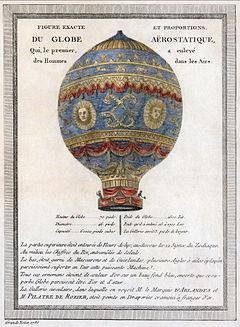 FIGURE EXACTE ET PROPORTIONS.
DU GLOBE AËROSTATIQUE,
Qui, le premier, a enlevé
des Hommes dans les Airs.
Hauteur du Globe 70 pieds Poids du Globe
Diametre 46 pieds
Capacité 60000 pieds cubes
La partie supérieure étoit entourée de Fleurs-de-lys; au-dessous les 12 Signes du Zodiaque.
Au milieu les Chiffres du Roi, entremêlés de Soleils.
Le bas, étoit garni de Mascarons et de Guirlandes, plusieurs Aigles à ailes éployées
paroissoient supporter en l'air cette puissante Machine.
Tous ces ornemens étoient de couleur d'or sur un beau fond bleu, ensorte que ce su-
perbe Globe paroissoit être d'or et d'azur.
La Gallerie circulaire, dans laquelle on voyoit M. le Marquis D'ARLANDES et
M. PILATRE DE ROZIER, étoit peinte en Draperies cramoisi à franges d'or.